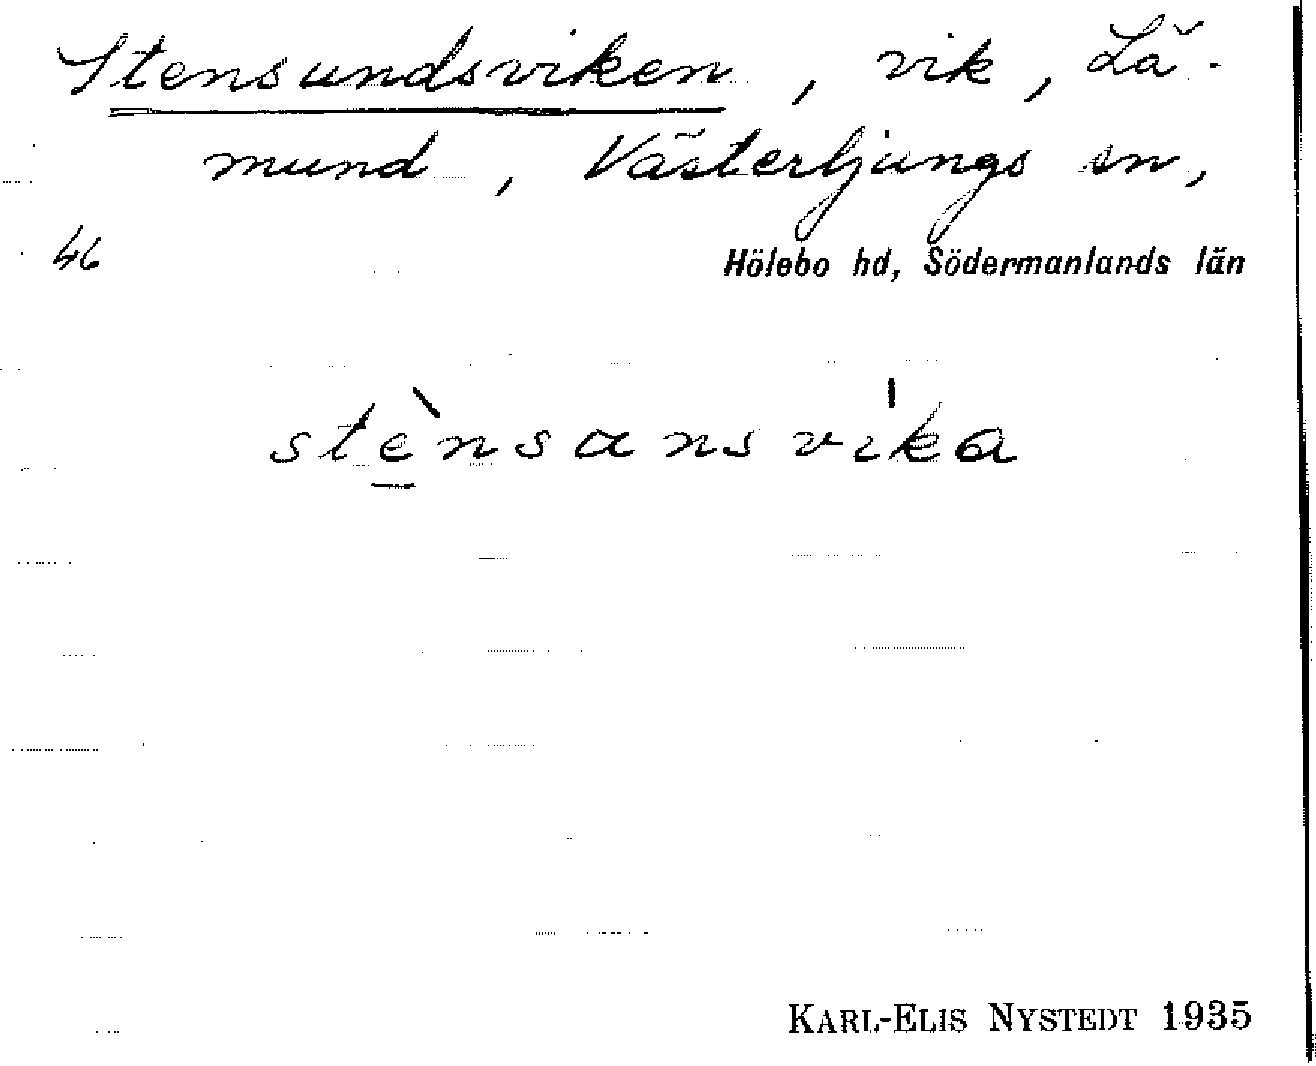 Stensundsviken, vik, Lä-
mund, Västerljungs sn,
46
Hölebo hd, Södermanlands län
stènsansvi'ka
KARL-ELIS NYSTEDT 1935